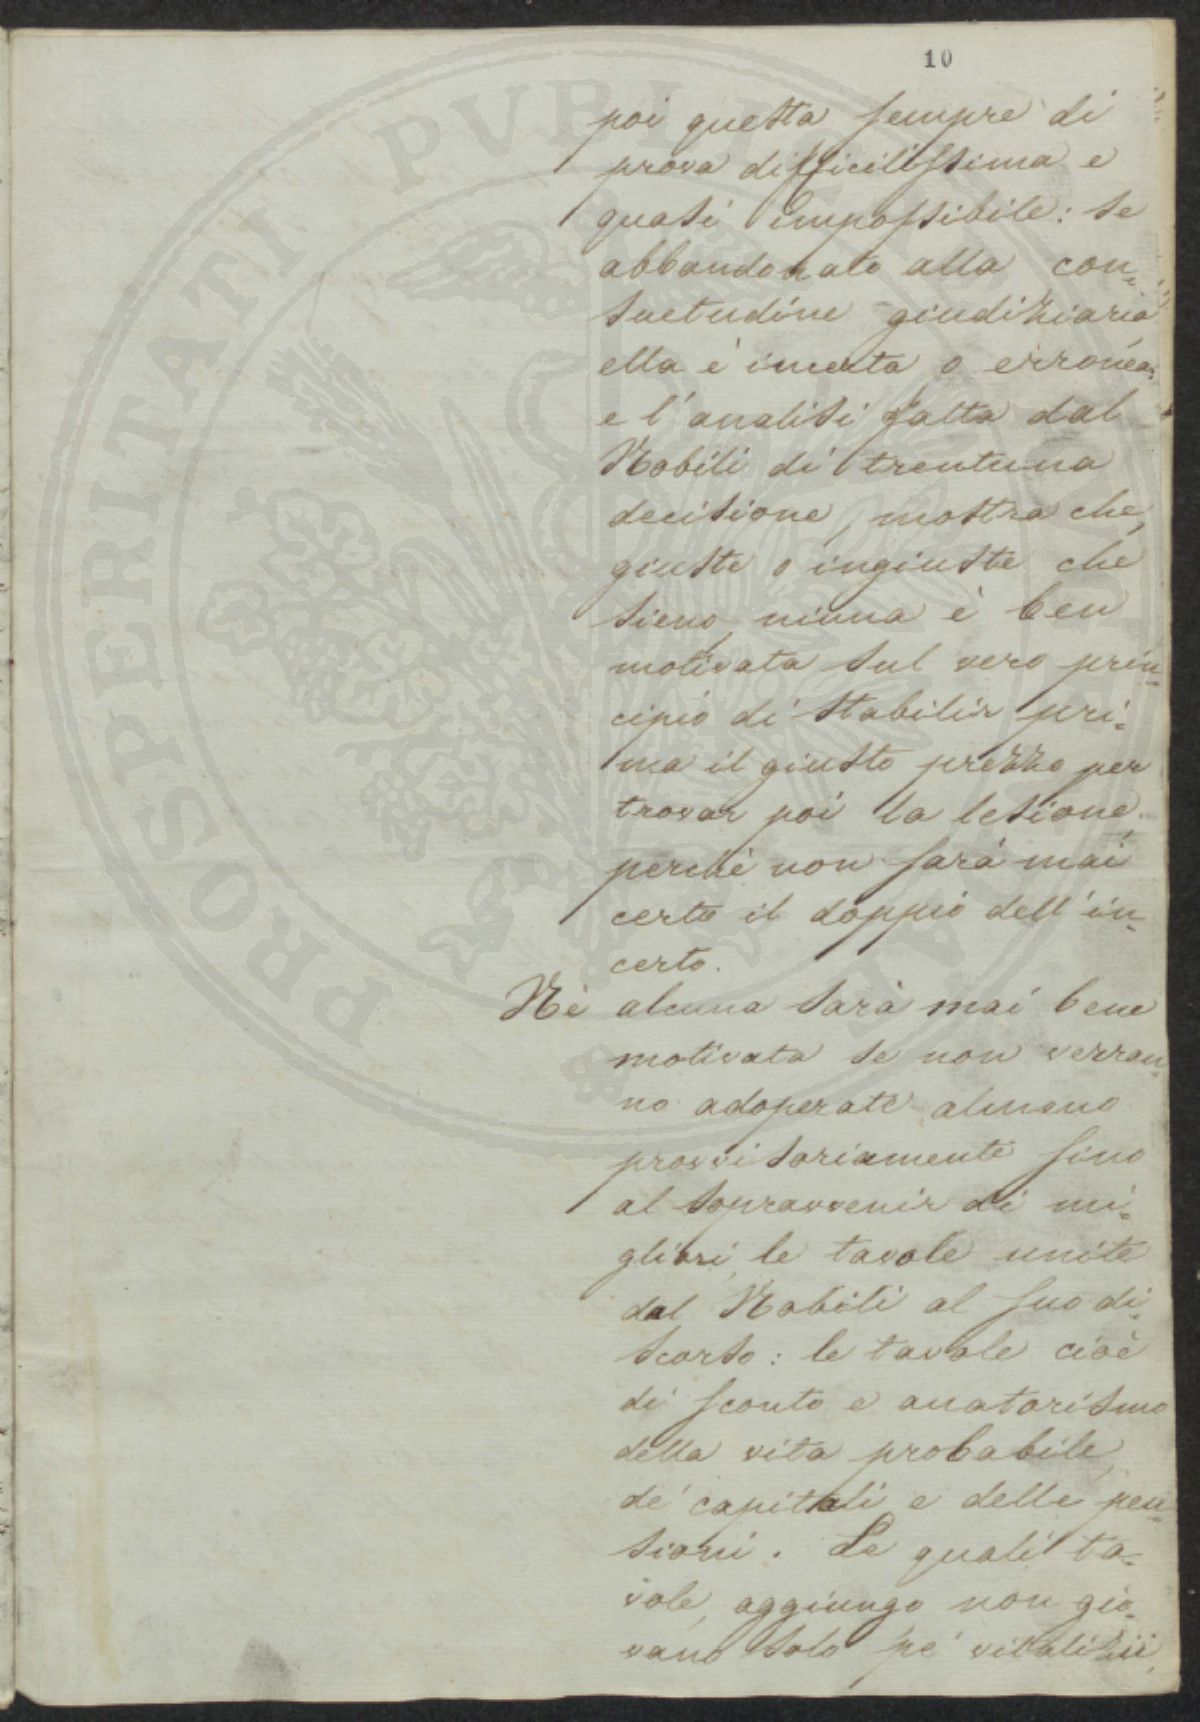 10
poi questa sempre di
prova difficilissima e
quasi impossibile: se
abbandonato alla con=
suetudine giudiziaria
ella è incerta o erronea:
e l'analisi fatta dal
Nobili di trentuna
decisione, mostra che,
giuste o ingiuste che
sieno, niuna è ben
motivata sul vero prin=
cipio di stabilir pri=
ma il giusto prezzo per
trovar poi la lesione,
perchè non sarà mai
certo il doppio dell'in=
certo.
Nè alcuna sarà mai bene
motivata se non verran=
no adoperate almeno
provvisoriamente fino
al sopravvenir di mi=
gliori, le tavole unite
dal Nobili al suo di=
scorso: le tavole cioè
di sconto e anatorismo
della vita probabile,
de' capitali e delle pen=
sioni. Le quali ta=
vole, aggiungo non gio=
vano solo pe' vitalizii,
PROSPERITATI PVBLICAE